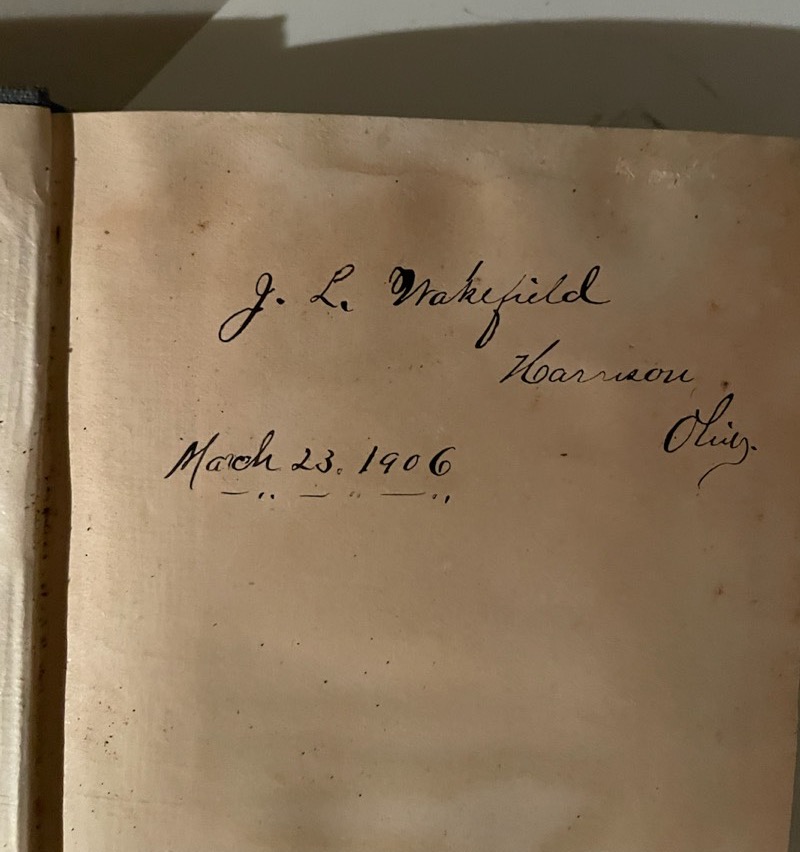 J. L. Wakefield
Harrison
Ohio.
March 23. 1906